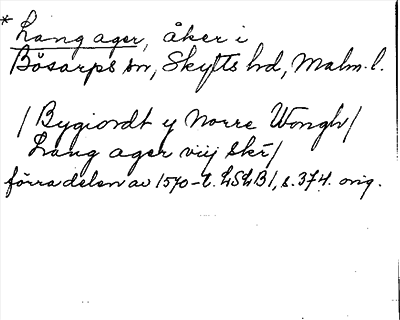 * Lang ager, åker i
Bösarps sn, Skytts hd, Malm. l.
/Bygiordt y Norre Wongh/
Lang ager viij Skr/
förra delen av 1570-t. LSLB1, s. 374. orig.